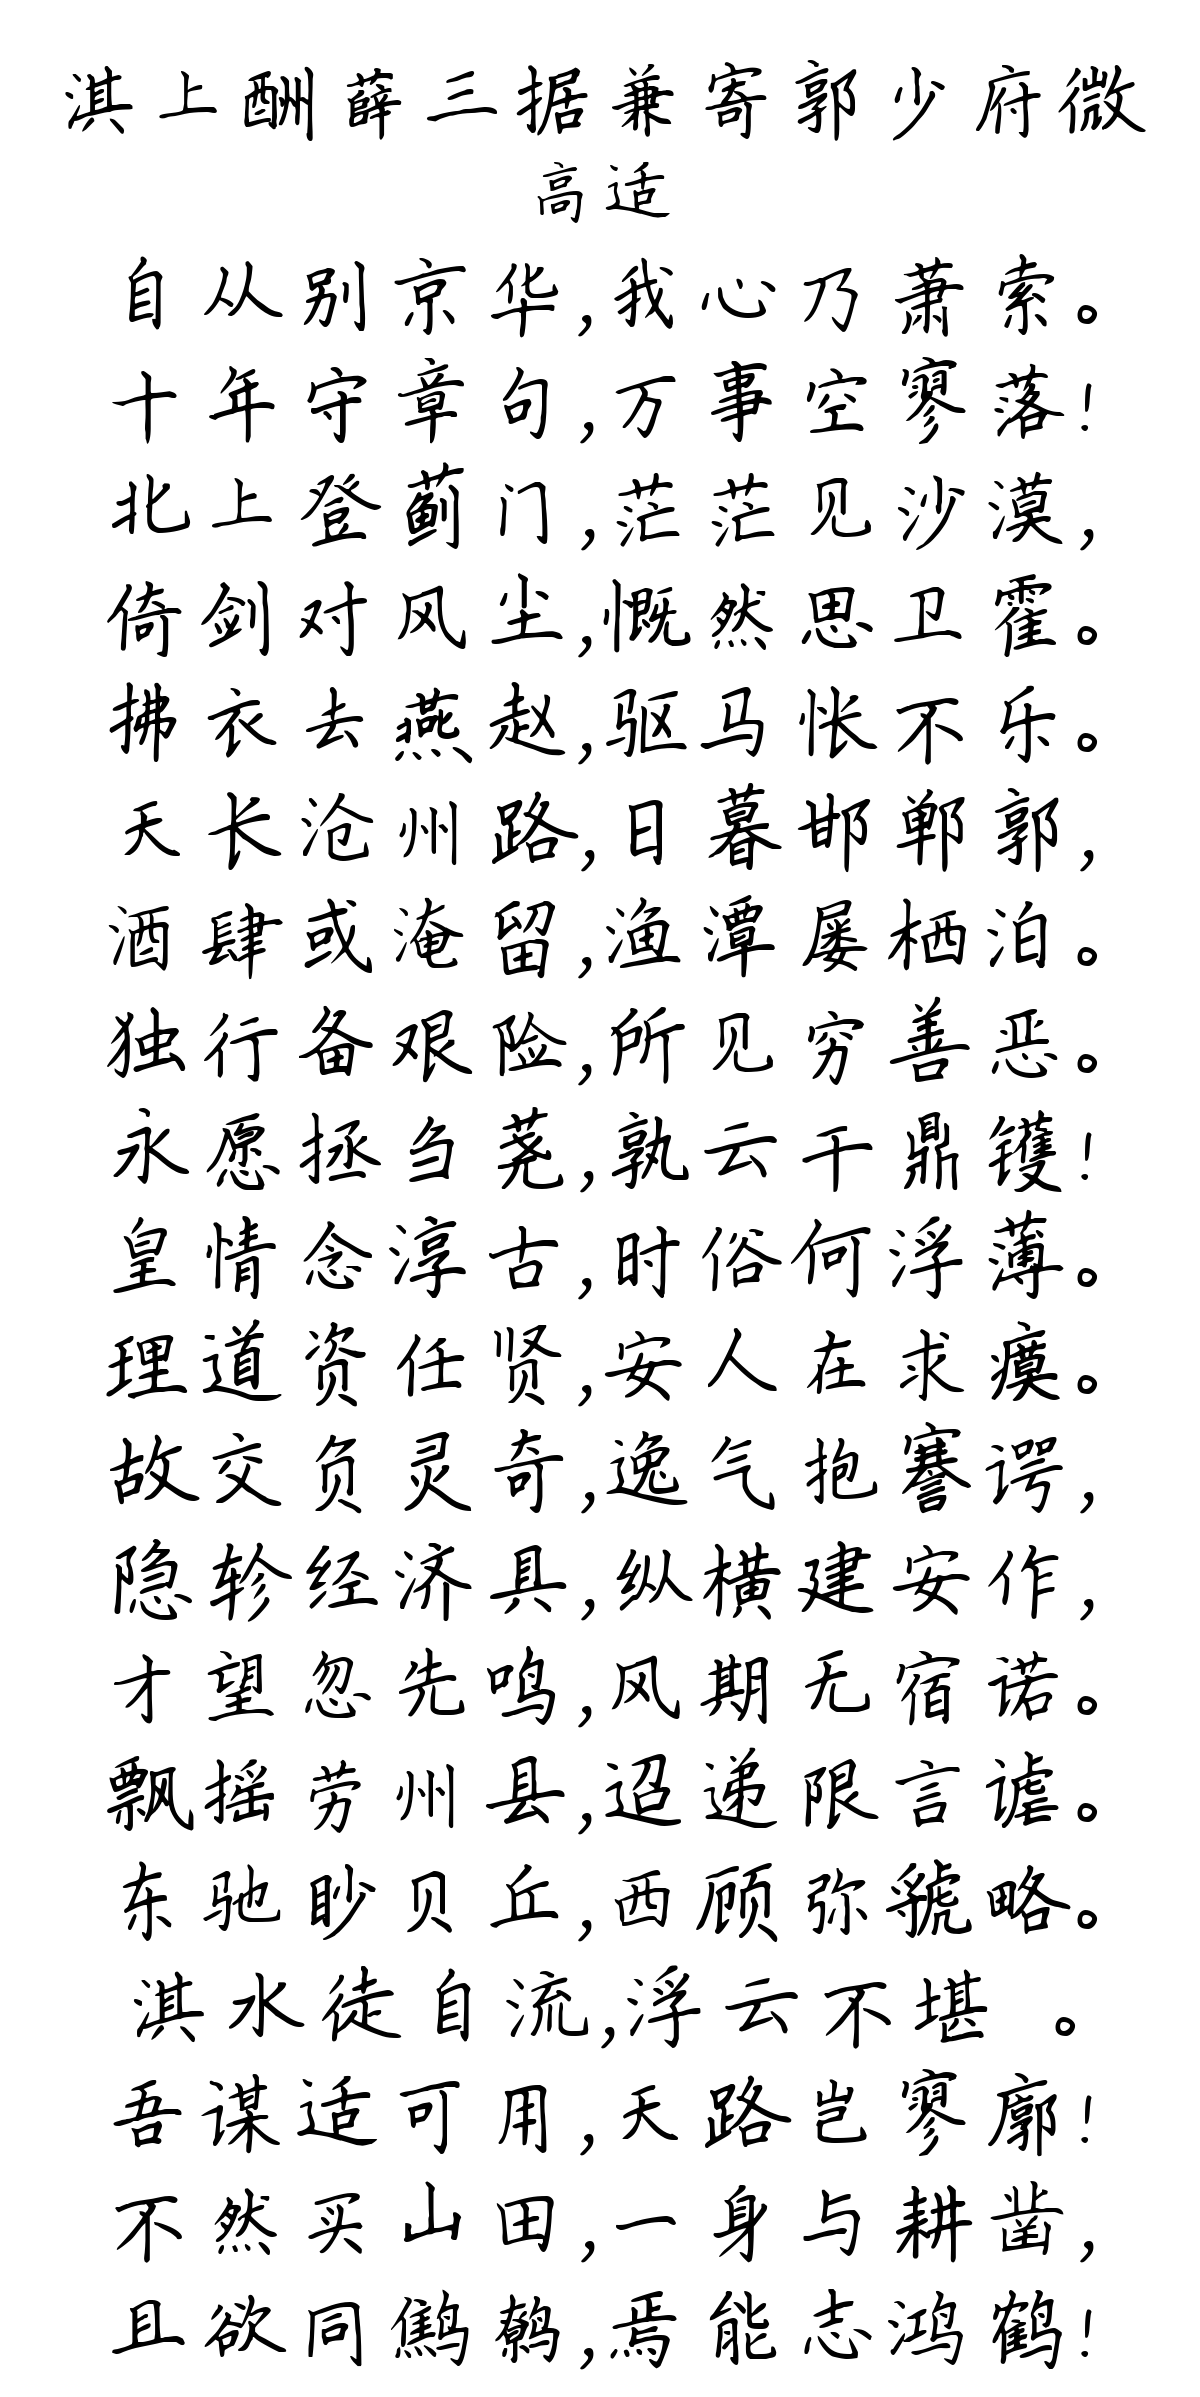 淇上酬薛三据兼寄郭少府微
高适
自从别京华,我心乃萧索。
十年守章句,万事空寥落!
北上登蓟门,茫茫见沙漠,
倚剑对风尘,慨然思卫霍。
拂衣去燕赵,驱马怅不乐。
天长沧州路,日暮邯郸郭,
酒肆或淹留,渔潭屡栖泊。
独行备艰险,所见穷善恶。
永愿拯刍荛,孰云干鼎镬!
皇情念淳古,时俗何浮薄。
理道资任贤,安人在求瘼。
故交负灵奇,逸气抱謇谔,
隐轸经济具,纵横建安作,
才望忽先鸣,风期无宿诺。
飘摇劳州县,迢递限言谑。
东驰眇贝丘,西顾弥虢略。
淇水徒自流,浮云不堪 。
吾谋适可用,天路岂寥廓!
不然买山田,一身与耕凿,
且欲同鹪鹩,焉能志鸿鹤!